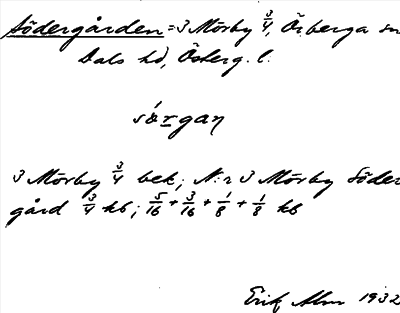 Södergården = 3 Mörby 3/4, Örberga sn
Dals hd, Österg. l.
sö́rgan
3 Mörby 3/4 bek; N:r 3 Mörby Söder
gård 3/4 kb; 5/16 + 3/16 + 1/8 + 1/8 kb
Erik Alm 1932